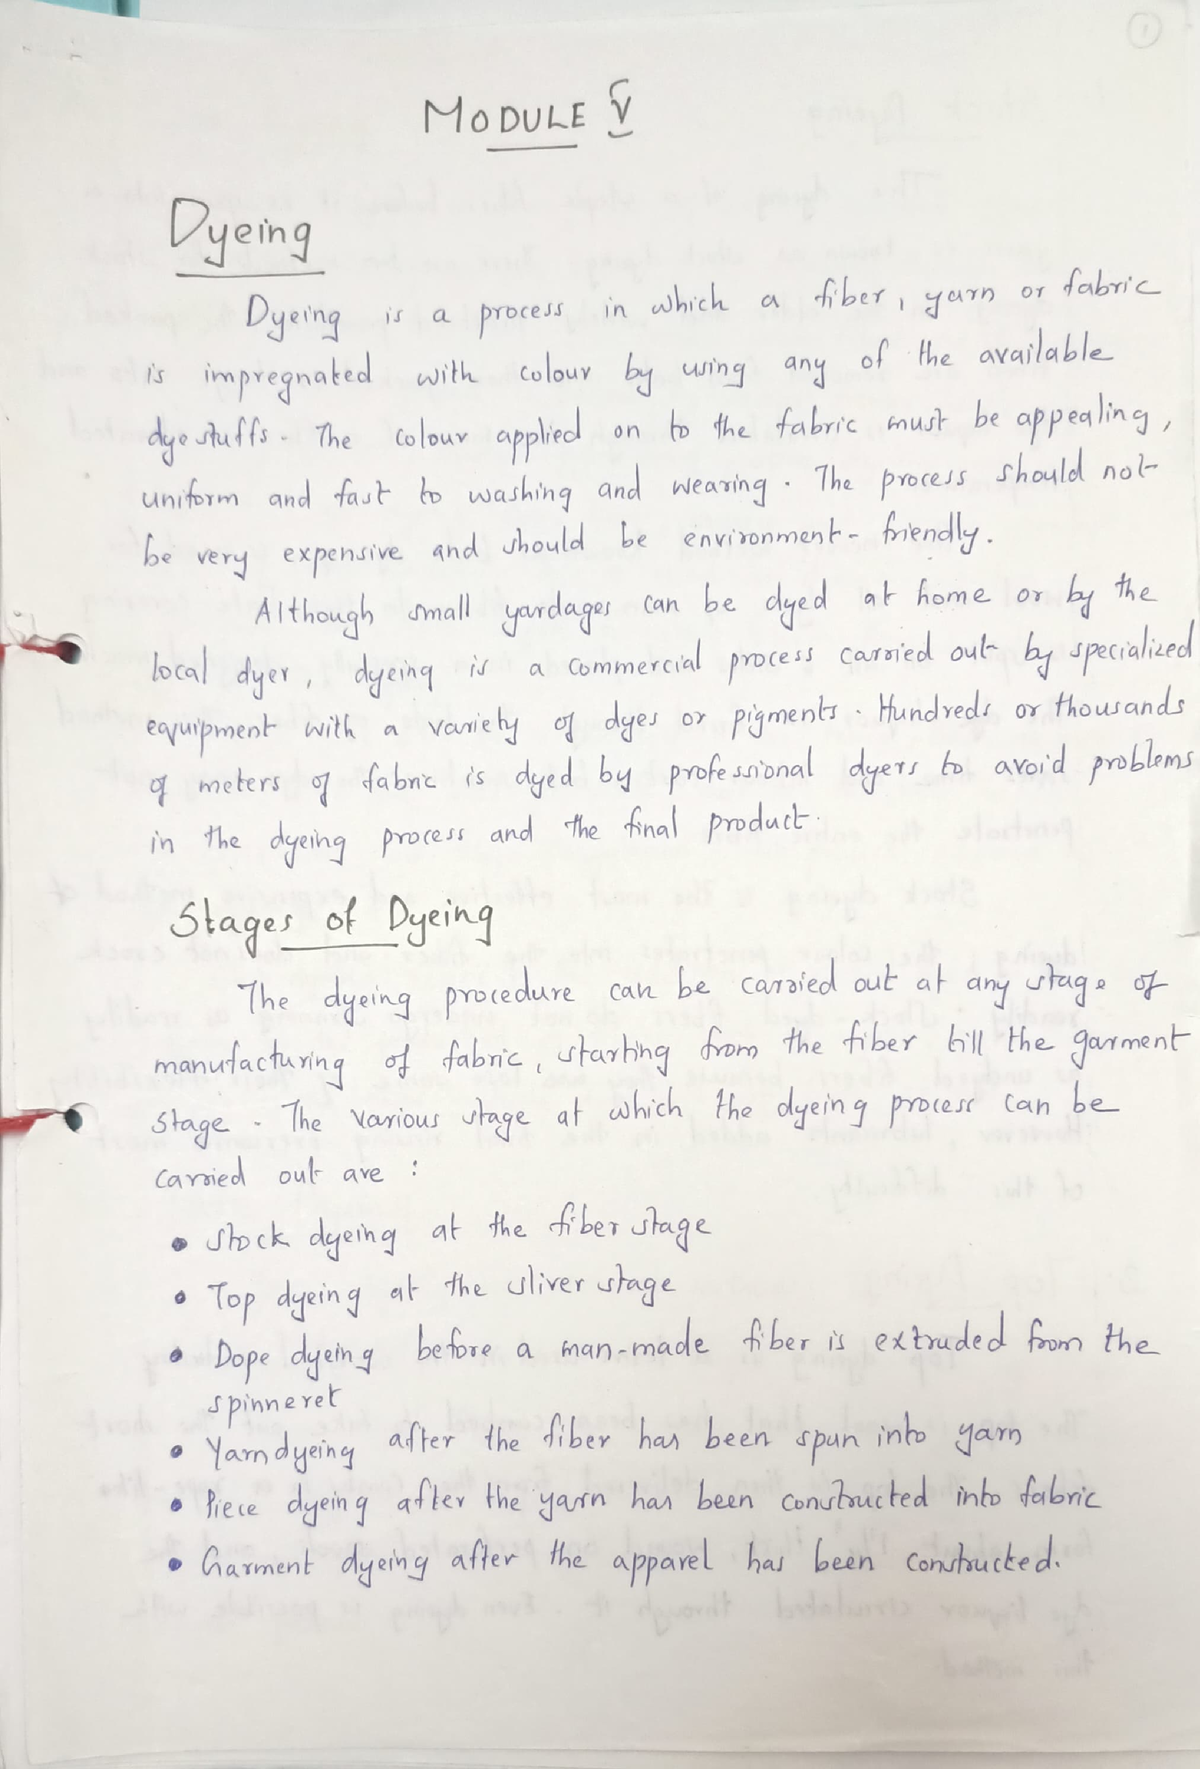 1
MODULE V
Dyeing
Dyeing is a process in which a fiber, yarn or fabric
is impregnated with colour by using any of the available
dyestuffs. The colour applied on to the fabric must be appealing,
uniform and fast to washing and wearing. The process should not
be very expensive and should be environment-friendly.
Although small yardages can be dyed at home or by the
local dyer, dyeing is a commercial process carried out by specialized
equipment with a variety of dyes or pigments. Hundreds or thousands
of meters of fabric is dyed by professional dyers to avoid problems
in the dyeing process and the final product.
Stages of Dyeing
The dyeing procedure can be carried out at any stage of
manufacturing of fabric, starting from the fiber till the garment
stage. The various stage at which the dyeing process can be
carried out are :
• Stock dyeing at the fiber stage
• Top dyeing at the sliver stage
• Dope dyeing before a man-made fiber is extruded from the
spinneret
• Yarn dyeing after the fiber has been spun into yarn
• Piece dyeing after the yarn has been constructed into fabric
• Garment dyeing after the apparel has been constructed.